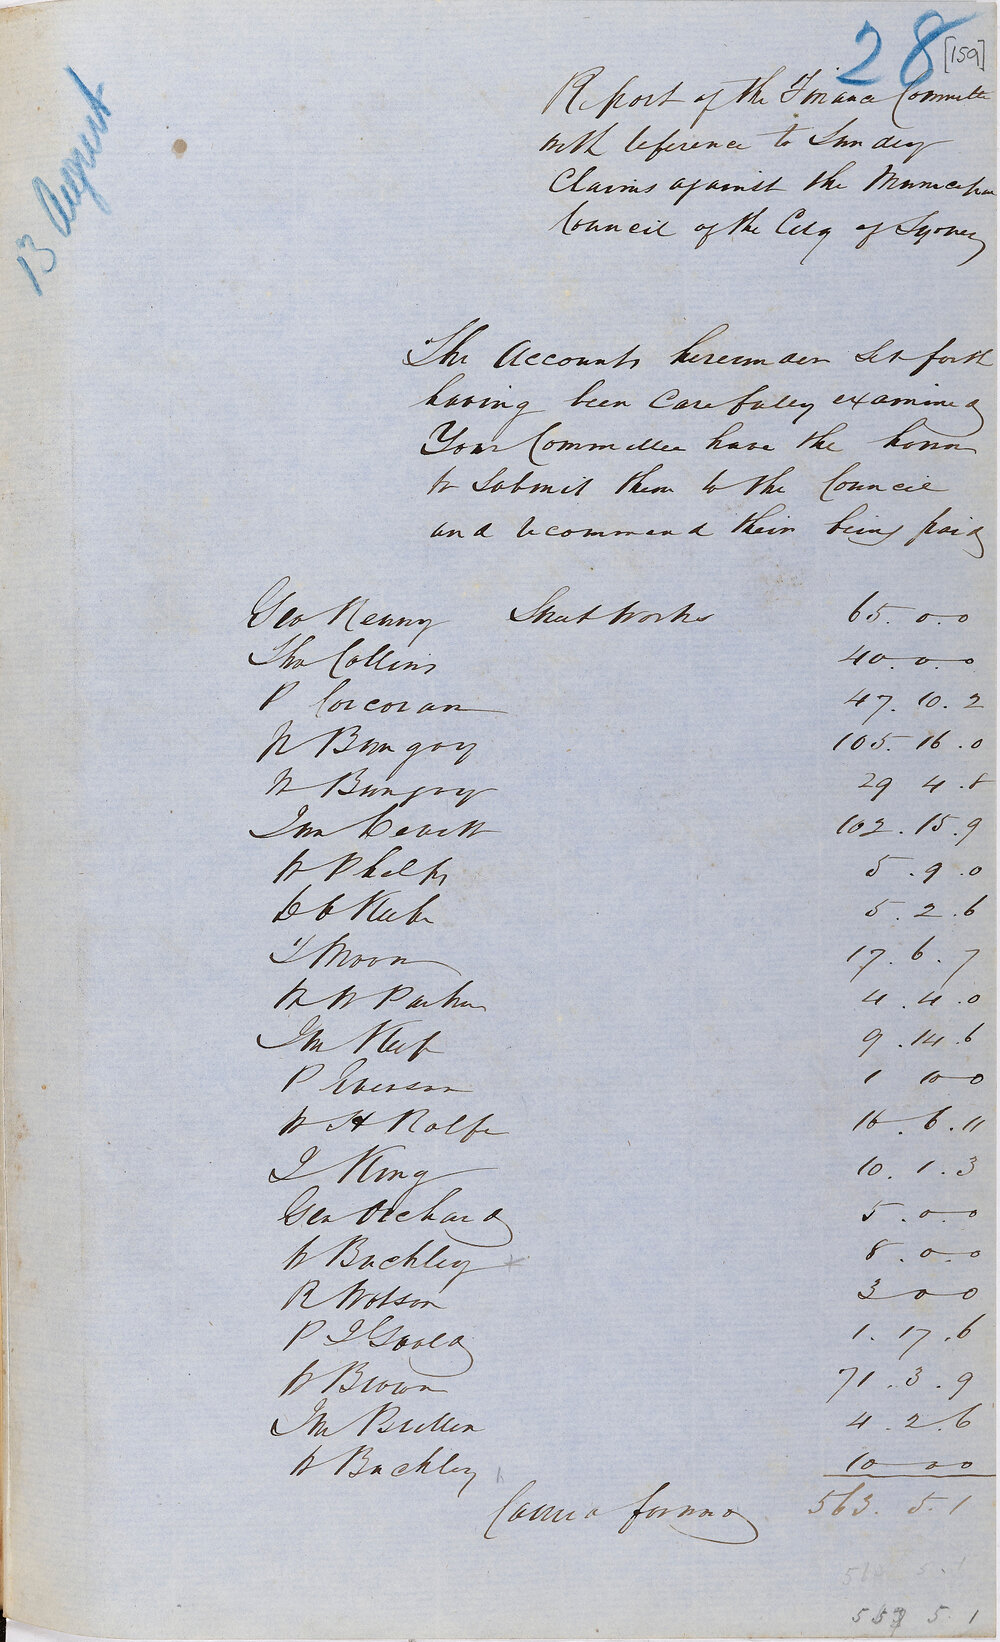 28
[159]
13 August
Report of the Finance Committee
with reference to Sundry
Claims against the Municipal
Council of the City of Sydney
The Accounts hereunder set forth
having been carefully examined
Your Committee have the honor
to submit them to the Council
and recommend their being paid
Geo Kenny Street Works 65. 0. 0
Tho Collins 40. 0. 0
P Corcoran 47. 10. 2
W Bumgay 105. 16. 0
W Bumgay 29 4. 8
Jno 102. 15. 9
W Phelps 5. 9. 0
5. 2. 6
T Moon 17. 6. 7
W W Parker 4. 4. 0
Jno Keep 9. 14. 6
P Iverson 1 10 0
W H Rolfe 16. 6. 11
J King 10. 1. 3
Geo Orchard 5. 0. 0
W Buckley 8. 0. 0
R Watson 3 0 0
P J Gould 1. 17. 6
W Brown 71. 3. 9
Jno Bullen 4. 2. 6
W Buckley 10 0 0
Carried forward 563. 5. 1
5. 1
5 1